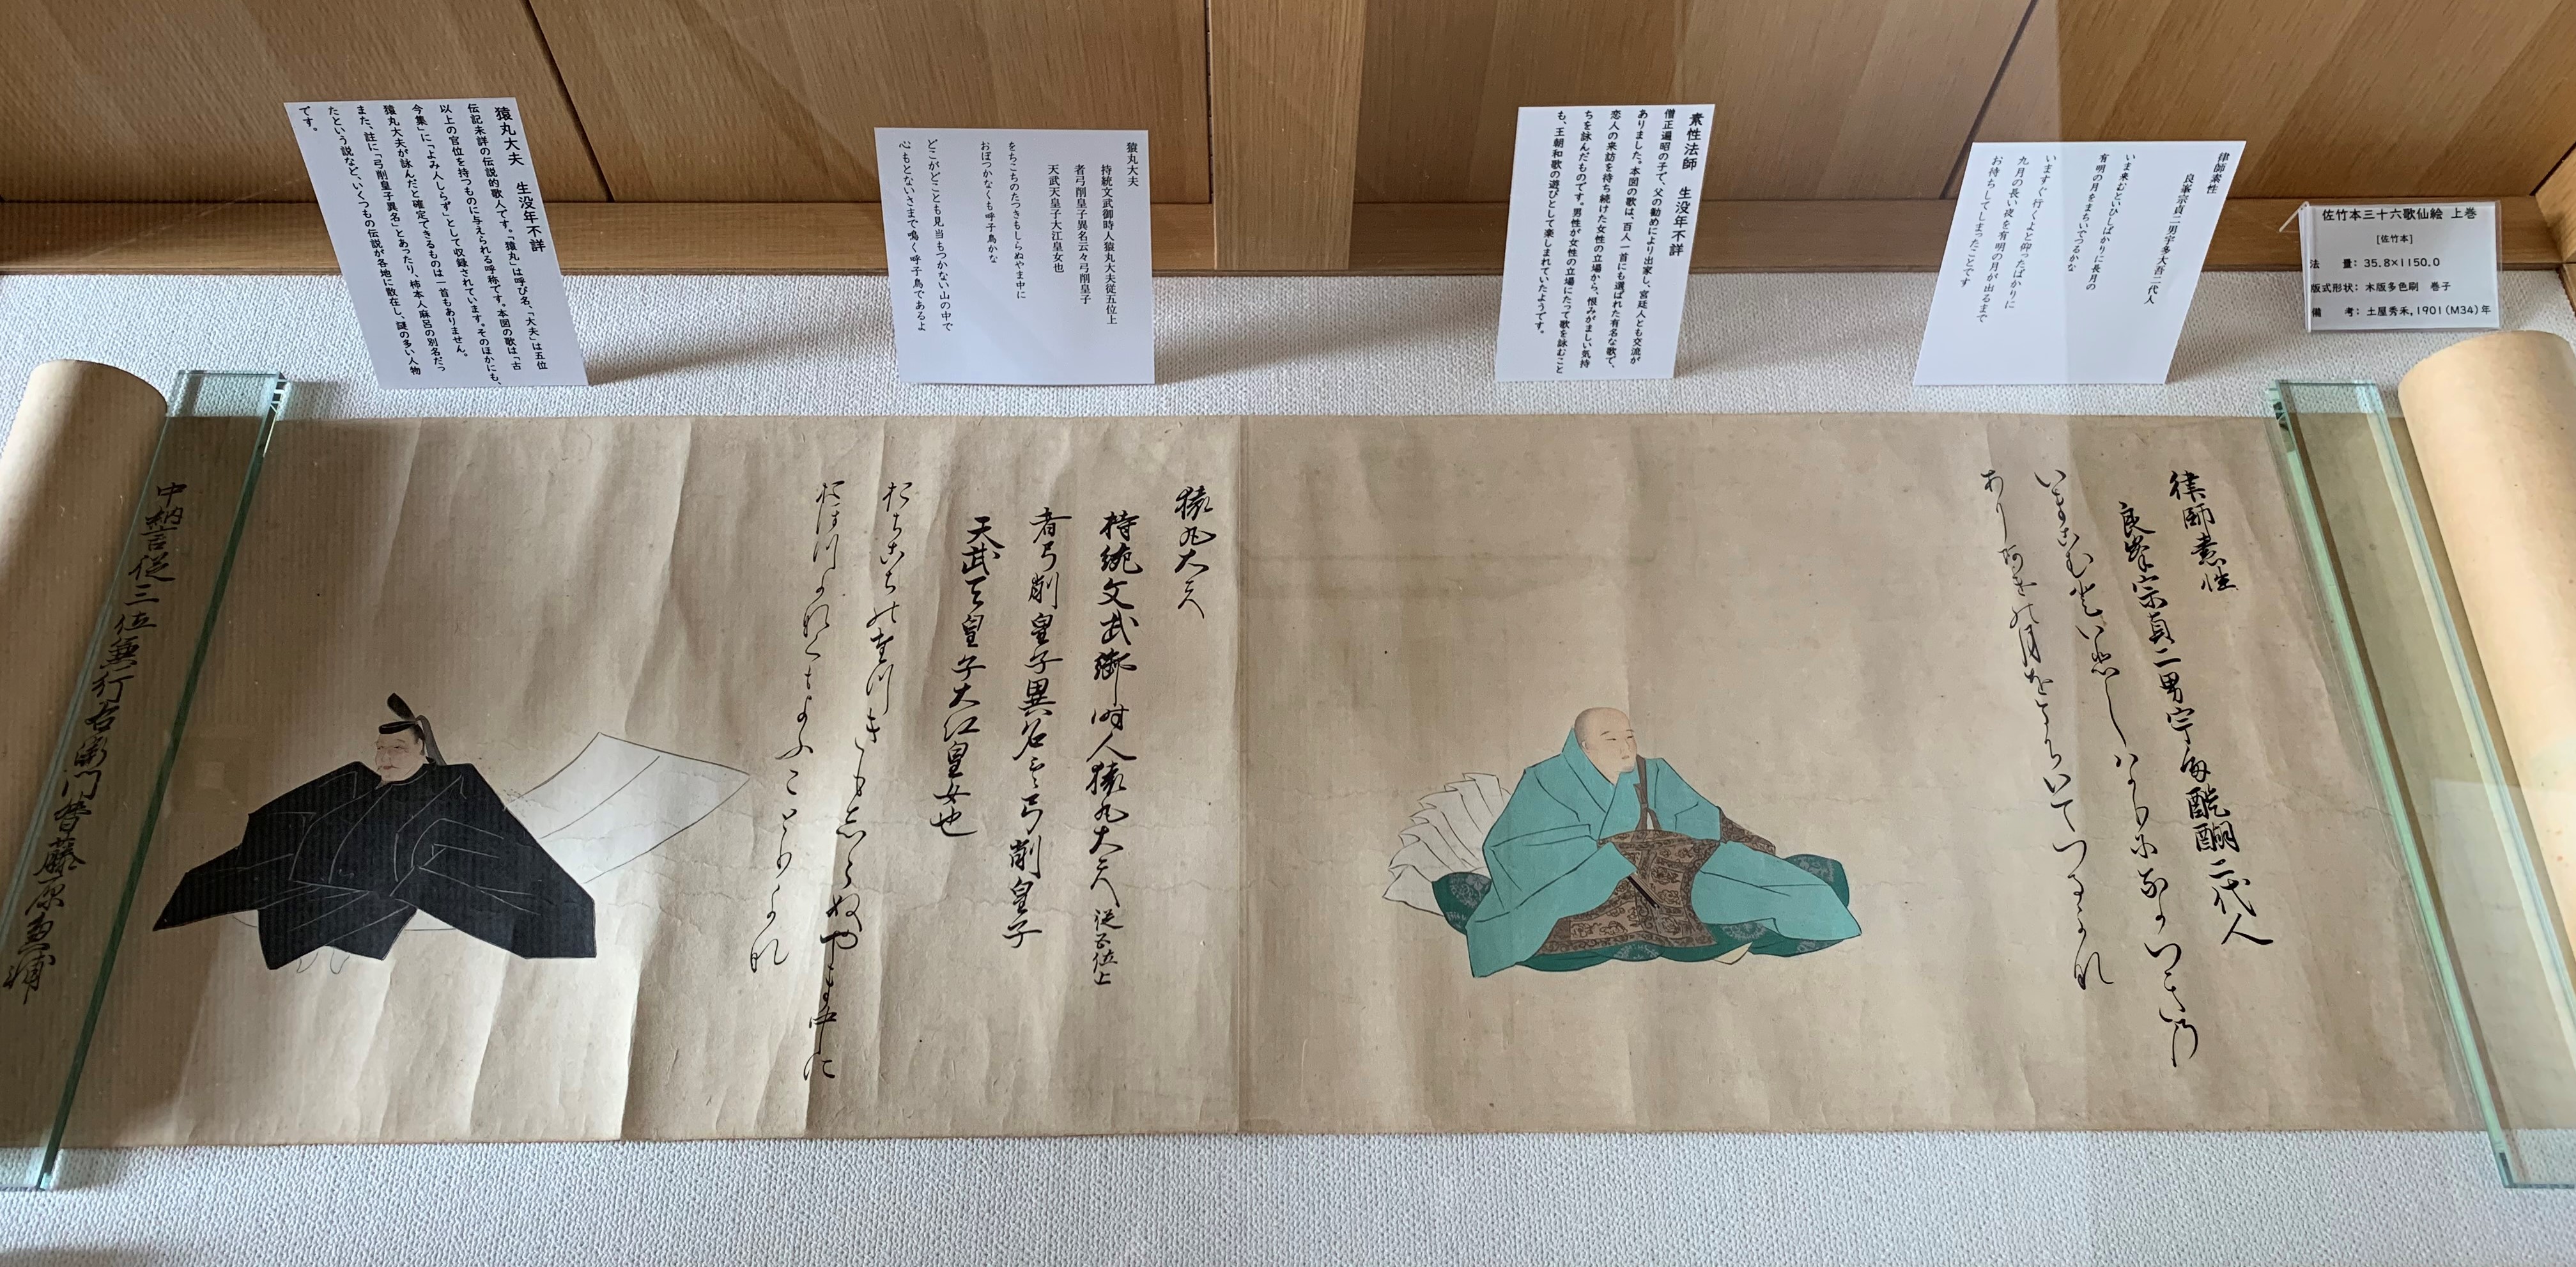 佐竹本三十六歌仙絵 上巻
[佐竹本]
法 量: 35.8×1150.0
版式形状: 木版多色刷 巻子
備 考: 土屋秀禾, 1901(M34)年
律師素性
良峯宗貞二男宇多大吾二代人
いま来むといひしばかりに長月の
有明の月をまちいでつるかな
いますぐ行くよと仰ったばかりに
九月の長い夜を有明の月が出るまで
お待ちしてしまったことです
素性法師 生没年不詳
僧正遍昭の子で、父の勧めにより出家し、宮廷人とも交流が
ありました。本図の歌は、百人一首にも選ばれた有名な歌で、
恋人の来訪を待ち続けた女性の立場から、恨みがましい気持
ちを詠んだものです。男性が女性の立場にたって歌を詠むこと
も、王朝和歌の遊びとして楽しまれていたようです。
猿丸大夫
持統文武御時人猿丸大夫従五位上
者弓削皇子異名云々弓削皇子
天武天皇子大江皇女也
をちこちのたつきもしらぬやま中に
おぼつかなくも呼子鳥かな
どこがどことも見当もつかない山の中で
心もとないさまで鳴く呼子鳥であるよ
猿丸大夫 生没年不詳
伝記未詳の伝説的歌人です。「猿丸」は呼び名、「大夫」は五位
以上の官位を持つものに与えられる呼称です。本図の歌は「古
今集」に「よみ人しらず」として収録されています。そのほかにも、
猿丸大夫が詠んだと確定できるものは一首もありません。
また、註に「弓削皇子異名」とあったり、柿本人麻呂の別名だっ
たという説など、いくつもの伝説が各地に散在し、謎の多い人物
です。
律師素性
良峯宗貞二男宇多醍醐二代人
いまこむといひしハかりになかつきの
ありあけの月をまちいてつるかな
猿丸大夫
持統文武御時人猿丸大夫従五位上
者弓削皇子異名云弓削皇子
天武天皇子大江皇女也
をちこちのたつきもしらぬやま中に
おほつかなくもよふことりかな
中納言従三位兼行右衛門督藤原兼輔